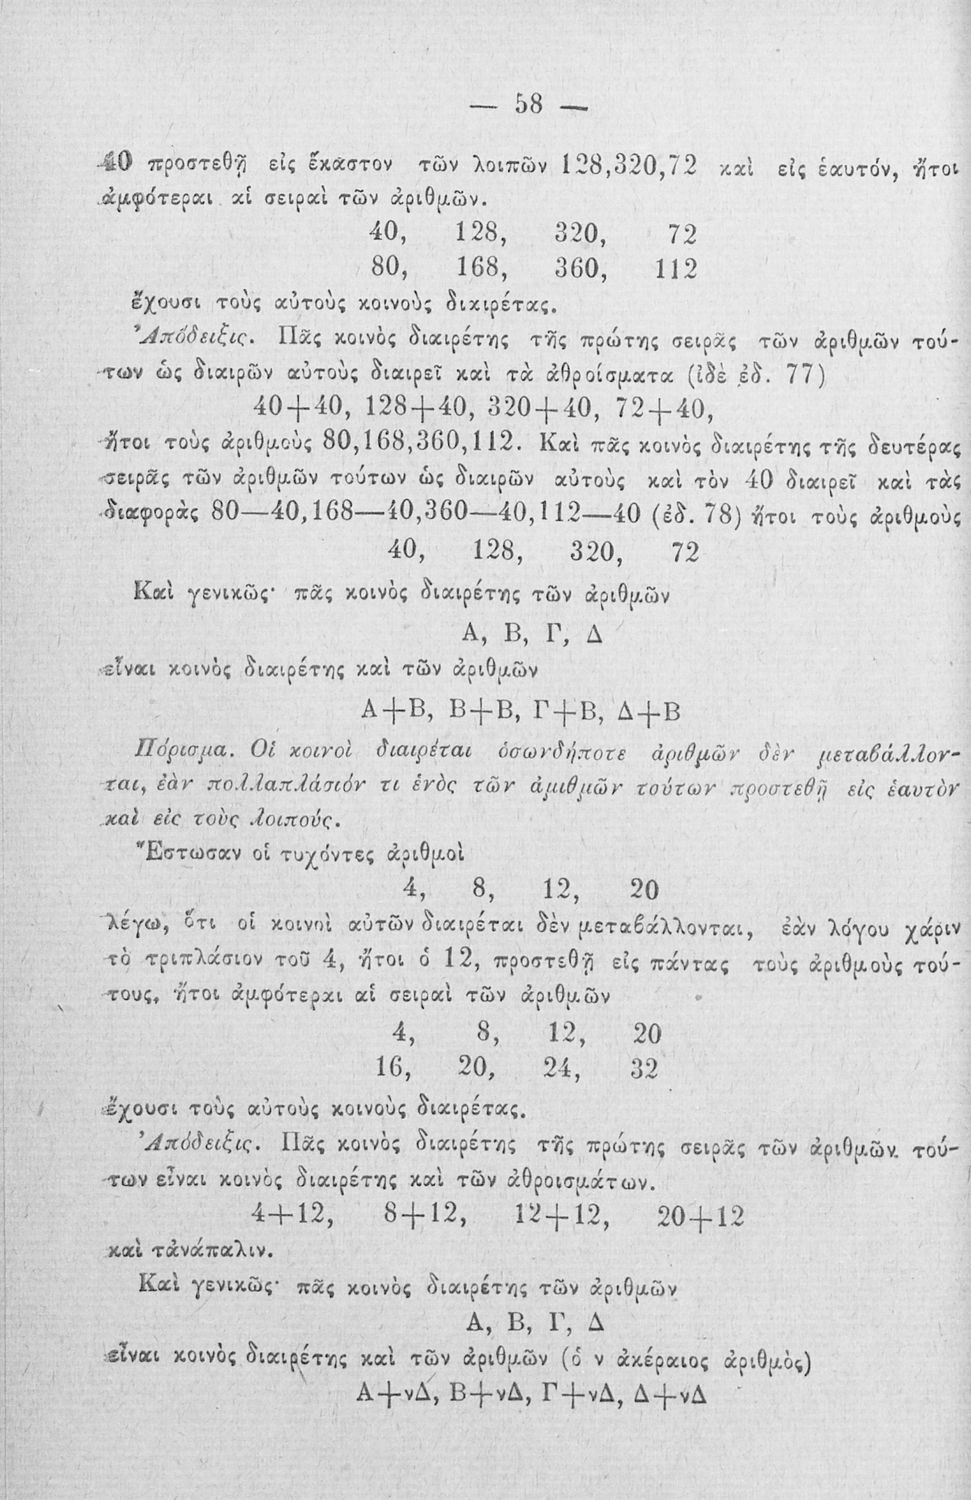 — 58 —
40 προστεθῇ εἰς ἕκαστον τῶν λοιπῶν 128,320,72 καὶ εἰς ἑαυτόν, ἤτοι
ἀμφότεραι αἱ σειραὶ τῶν ἀριθμῶν.
40, 128, 320, 72
80, 168, 360, 112
ἔχουσι τοὺς αὐτοὺς κοινοὺς διαιρέτας.
Ἀπόδειξις. Πᾶς κοινὸς διαιρέτης τῆς πρώτης σειρᾶς τῶν ἀριθμῶν τού-
των ὡς διαιρῶν αὐτοὺς διαιρεῖ καὶ τὰ ἀθροίσματα (ἰδὲ ἐδ. 77)
40+40, 128+40, 320+40, 72+40,
ἤτοι τοὺς ἀριθμοὺς 80,168,360,112. Καὶ πᾶς κοινὸς διαιρέτης τῆς δευτέρας
σειρᾶς τῶν ἀριθμῶν τούτων ὡς διαιρῶν αὐτοὺς καὶ τὸν 40 διαιρεῖ καὶ τὰς
διαφορὰς 80—40,168—40,360—40,112—40 (ἐδ. 78) ἤτοι τοὺς ἀριθμοὺς
40, 128, 320, 72
Καὶ γενικῶς· πᾶς κοινὸς διαιρέτης τῶν ἀριθμῶν
Α, Β, Γ, Δ
εἶναι κοινὸς διαιρέτης καὶ τῶν ἀριθμῶν
Α+Β, Β+Β, Γ+Β, Δ+Β
Πόρισμα. Οἱ κοινοὶ διαιρέται ὁσωνδήποτε ἀριθμῶν δὲν μεταβάλλον-
ται, ἐὰν πολλαπλάσιόν τι ἑνὸς τῶν ἀμιθμῶν τούτων προστεθῇ εἰς ἑαυτὸν
καὶ εἰς τοὺς λοιπούς.
Ἔστωσαν οἱ τυχόντες ἀριθμοὶ
4, 8, 12, 20
λέγω, ὅτι οἱ κοινοὶ αὐτῶν διαιρέται δὲν μεταβάλλονται, ἐὰν λόγου χάριν
τὸ τριπλάσιον τοῦ 4, ἤτοι ὁ 12, προστεθῇ εἰς πάντας τοὺς ἀριθμοὺς τού-
τους, ἤτοι ἀμφότεραι αἱ σειραὶ τῶν ἀριθμῶν
4, 8, 12, 20
16, 20, 24, 32
ἔχουσι τοὺς αὐτοὺς κοινοὺς διαιρέτας.
Ἀπόδειξις. Πᾶς κοινὸς διαιρέτης τῆς πρώτης σειρᾶς τῶν ἀριθμῶν τού-
των εἶναι κοινὸς διαιρέτης καὶ τῶν ἀθροισμάτων.
4+12, 8+12, 12+12, 20+12
καὶ τἀνάπαλιν.
Καὶ γενικῶς· πᾶς κοινὸς διαιρέτης τῶν ἀριθμῶν
Α, Β, Γ, Δ
εἶναι κοινὸς διαιρέτης καὶ τῶν ἀριθμῶν (ὁ ν ἀκέραιος ἀριθμὸς)
Α+νΔ, Β+νΔ, Γ+νΔ, Δ+νΔ